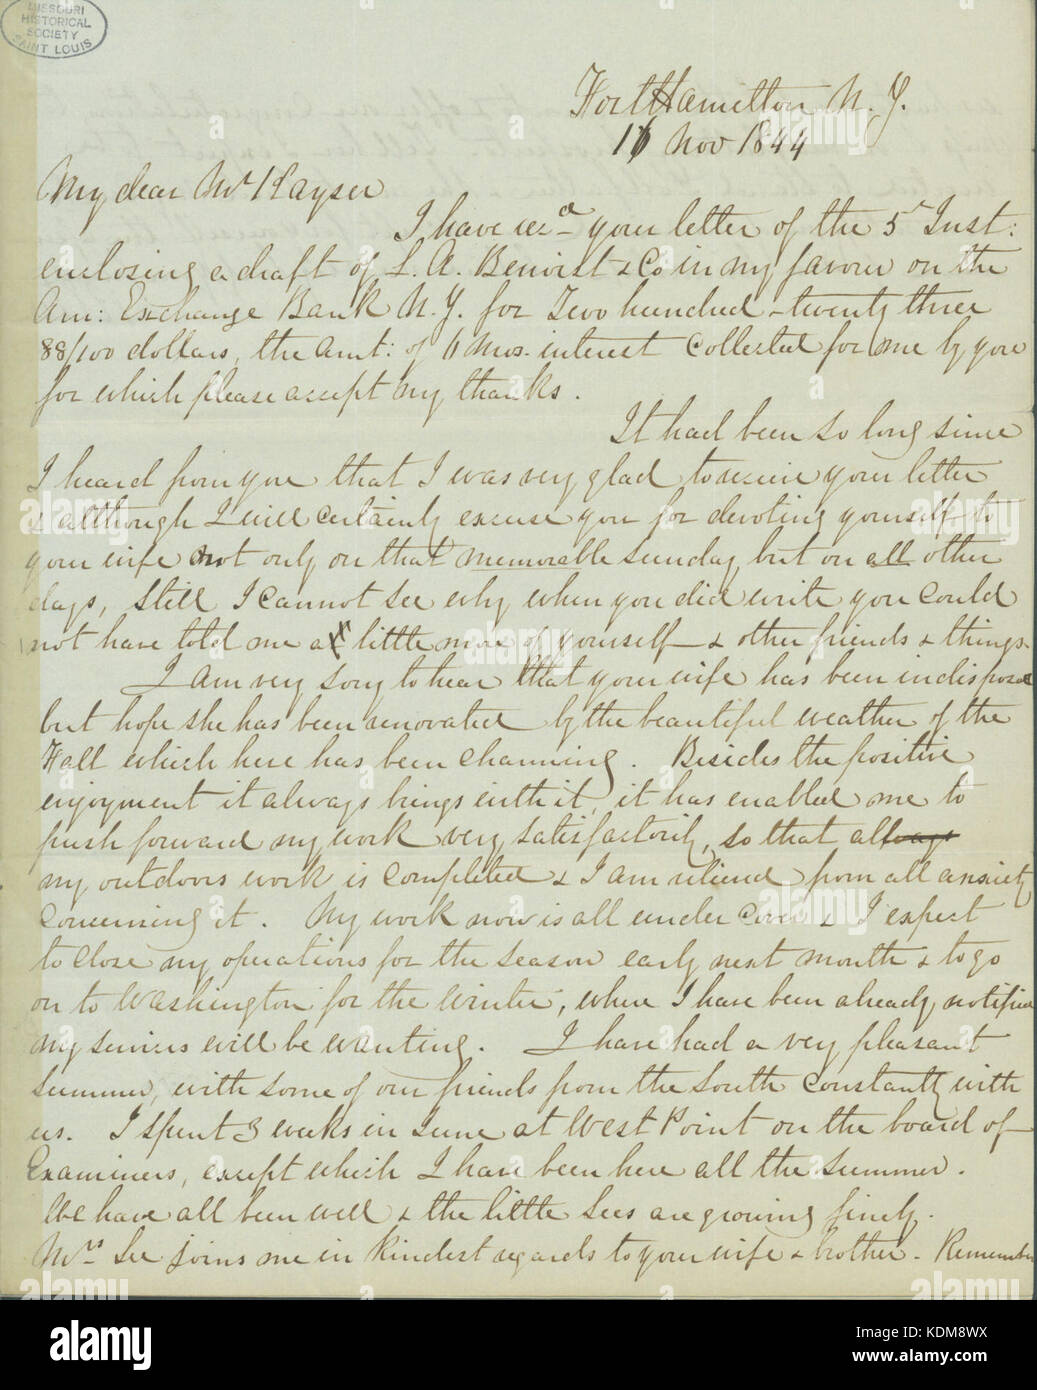 MISSOURI
HISTORICAL
SOCIETY
SAINT LOUIS
Fort Hamilton N. Y.
16 Nov 1844
My dear Mr Kayser
I have recd your letter of the 5th Inst:
enclosing a draft of L. A. Benoist & Co in my favour on the
Am: Exchange Bank N. Y. for Two hundred & twenty three
88/100 dollars, the Amt: of 6 mos. interest collected for me by you
for which please accept my thanks.
It had been so long since
I heard from you that I was very glad to receive your letter
& although I will certainly excuse you for devoting yourself to
your wife not only on that memorable Sunday but on all other
days, still I cannot see why when you did write you could
not have told me a little more of yourself & other friends & things.
I am very sorry to hear that your wife has been indisposed
but hope she has been renovated by the beautiful weather of the
Fall which here has been charming. Besides the positive
enjoyment it always brings with it, it has enabled me to
push forward my work very satisfactorily, so that all
my outdoors work is completed & I am relieved from all anxiety
concerning it. My work now is all under cover & I expect
to close my operations for the season early next month & to go
on to Washington for the winter, where I have been already notified
my services will be wanting. I have had a very pleasant
summer, with some of our friends from the South constantly with
us. I spent 3 weeks in June at West Point on the board of
Examiners, except which I have been here all the summer.
We have all been well & the little Lees are growing finely.
Mrs Lee joins me in kindest regards to your wife & brother. Remember
alamy
Image ID: KDM8WX
www.alamy.com